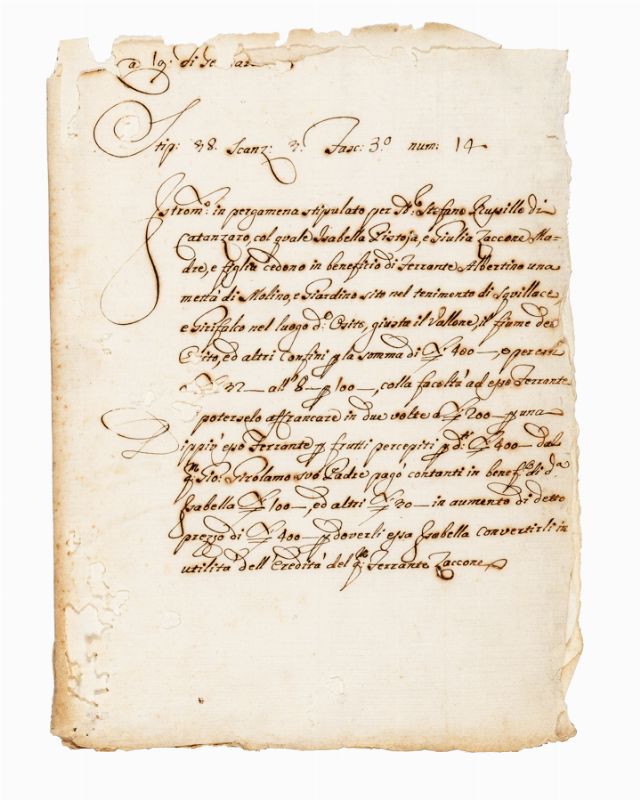 a 19: di
Stip: 38. Scanz: 3. Fasc: 3.º num: 14
Istrom.º in pergamena stipulato per N.r Stefano Rusille di
Catanzaro, col quale Isabella Pistoja, e Giulia Zaccone Ma-
dre, e figlia cedono in beneficio di Ferrante Albertino una
mettà di Molino, e Giardino sito nel tenimento di Squillace
e Girifalco nel luogo d.º Osito, giusta il Vallone, il fiume de
Osito, ed altri confini p la somma di D. 400 —, e per essi
D. 32 — all' 8 p 100 —, colla facoltà ad esso Ferrante
poterselo affrancare in due volte a D. 200 — p una
Dippiù esso Ferrante p frutti percepiti p d.i D. 400 — dal
q.m Gio: Girolamo suo Padre pagò contanti in benef.º di d.a
Isabella D. 100 —, ed altri D. 30 — in aumento di detto
prezzo di D. 400 — p doverli essa Isabella convertirli in
utilità dell' Eredità del q.m Ferrante Zaccone